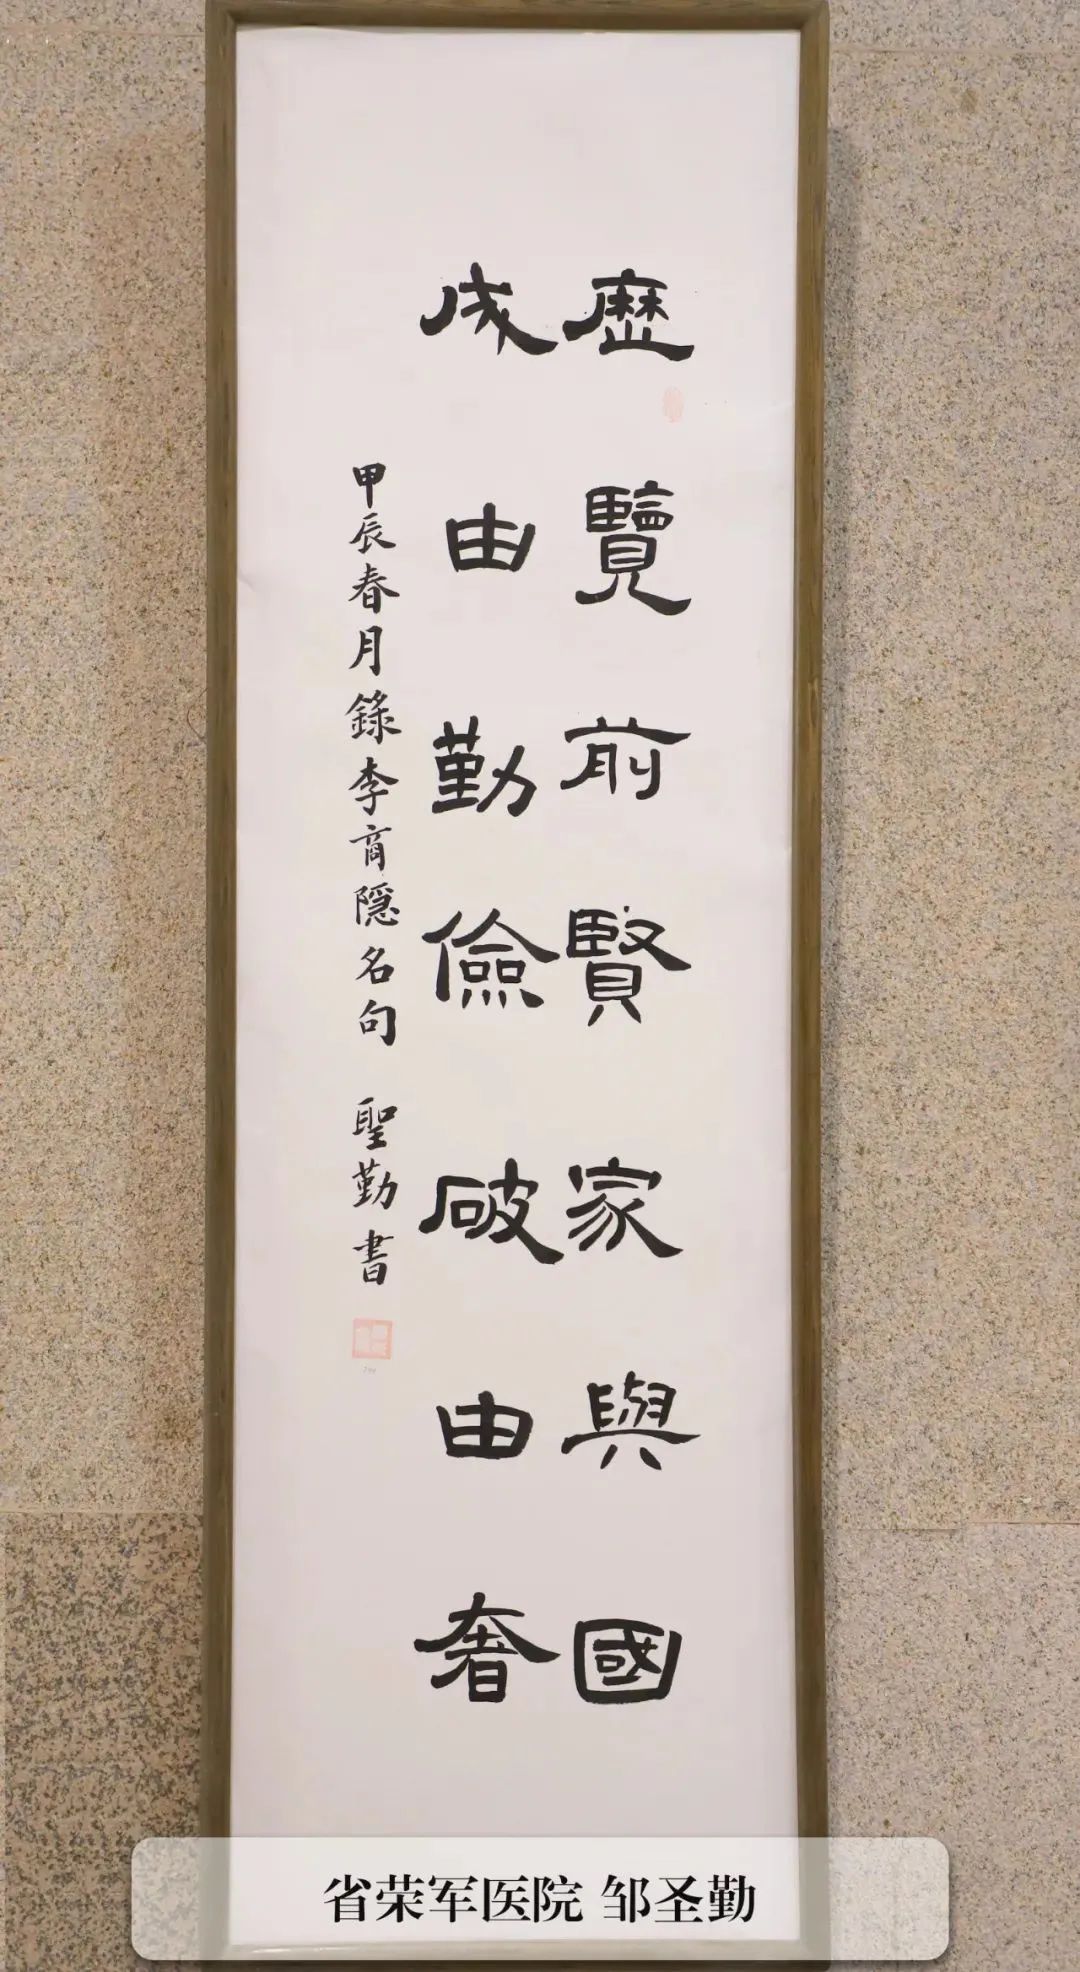 歷覽前賢家與國
成由勤儉破由奢
甲辰春月錄李商隱名句 聖勤書
省荣军医院 邹圣勤